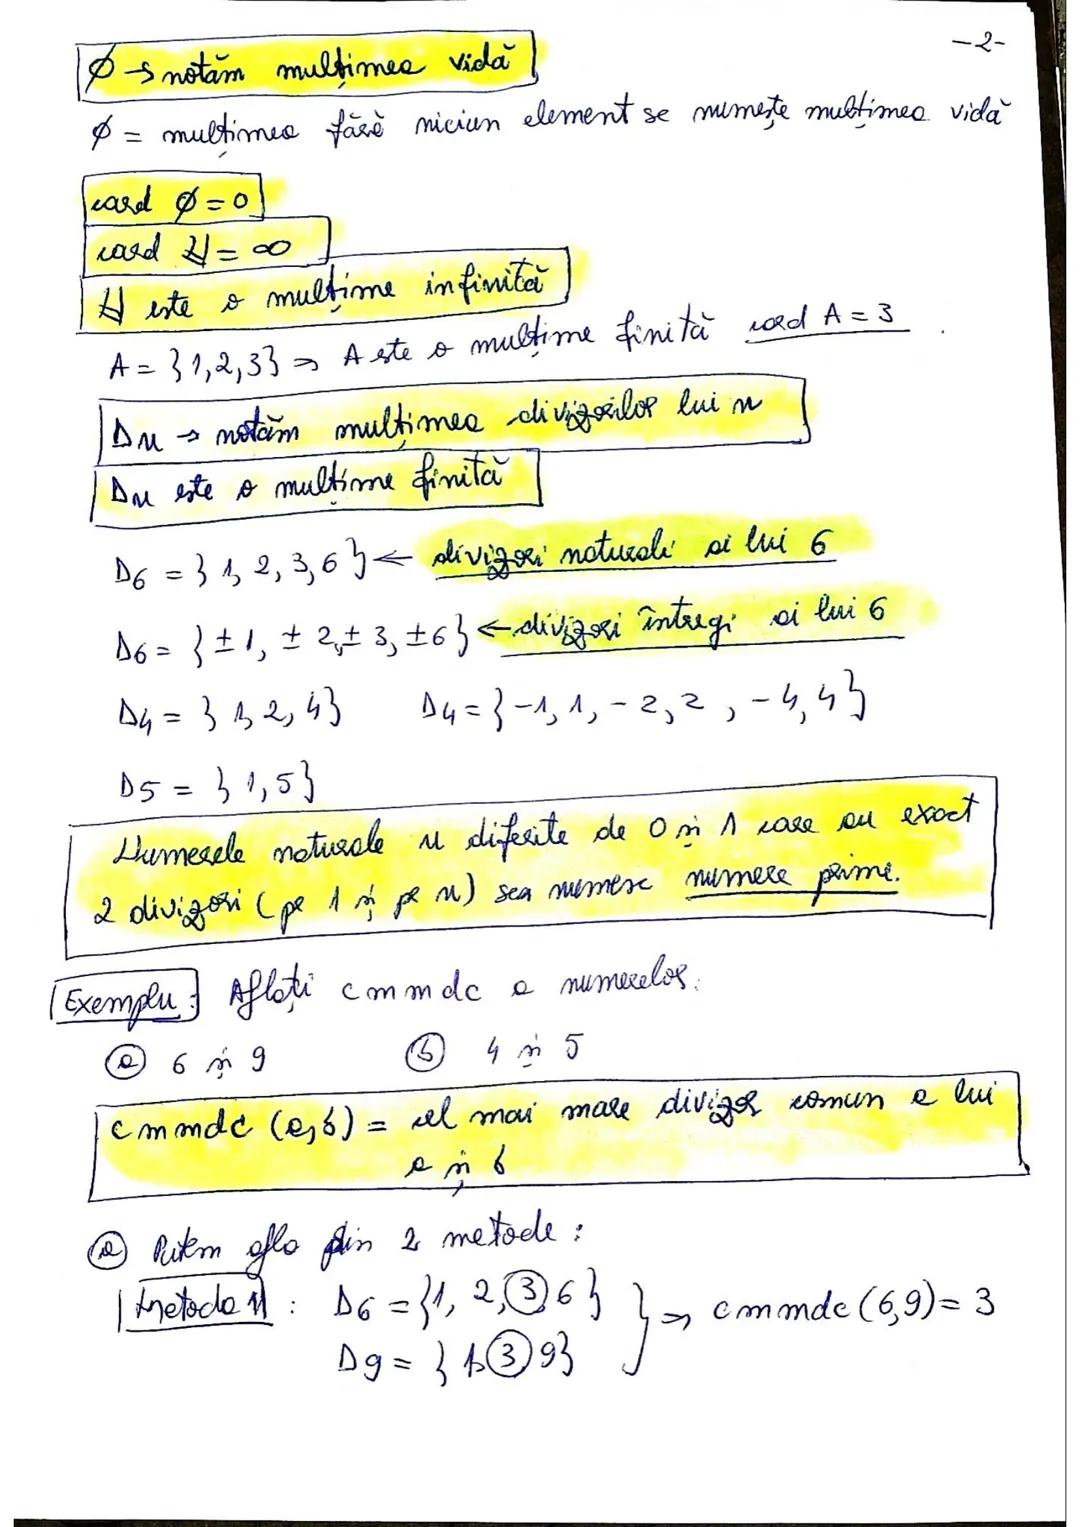 -2-
∅ → notăm mulțimea vidă
∅ = mulțimea fără niciun element se numește mulțimea vidă
card ∅ = 0
card ℕ = ∞
ℕ este o mulțime infinită
A = {1,2,3} ⇒ A este o mulțime finită card A = 3
Dn → notăm mulțimea divizorilor lui n
Dn este o mulțime finită
D6 = {1, 2, 3, 6} ← divizori naturali ai lui 6
D6 = {±1, ±2, ±3, ±6} ← divizori întregi ai lui 6
D4 = {1, 2, 4} D4 = {-1, 1, -2, 2, -4, 4}
D5 = {1, 5}
Numerele naturale n diferite de 0 și 1 care au exact
2 divizori (pe 1 și pe n) sea numesc numere prime.
Exemplu: Aflați cmmdc a numerelor:
ⓐ 6 și 9 ⓑ 4 și 5
cmmdc (a,b) = cel mai mare divizor comun a lui
a și b
ⓐ Putem afla prin 2 metode:
Metoda 1: D6 = {1, 2, ③, 6} } ⇒ cmmdc (6,9) = 3
D9 = {1, ③, 9}